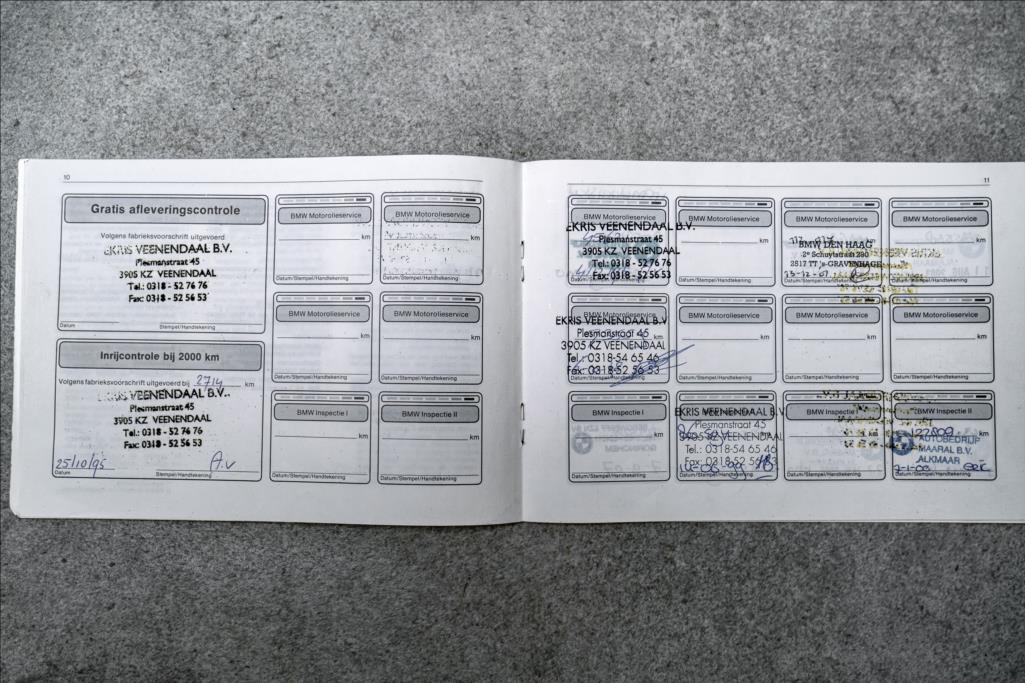 10
Gratis afleveringscontrole
Volgens fabrieksvoorschrift uitgevoerd
EKRIS VEENENDAAL B.V.
Plesmanstraat 45
3905 KZ VEENENDAAL
Tel.: 0318 - 52 76 76
Fax: 0318 - 52 56 53
Datum Stempel/Handtekening
Inrijcontrole bij 2000 km
Volgens fabrieksvoorschrift uitgevoerd bij 2714 km
EKRIS VEENENDAAL B.V.
Plesmanstraat 45
3905 KZ VEENENDAAL
Tel.: 0318 - 52 76 76
Fax: 0318 - 52 56 53
25/10/95 A.v
Datum Stempel/Handtekening
BMW Motorolieservice
km
Datum/Stempel/Handtekening
BMW Motorolieservice
km
Datum/Stempel/Handtekening
BMW Motorolieservice
km
Datum/Stempel/Handtekening
BMW Motorolieservice
km
Datum/Stempel/Handtekening
BMW Inspectie I
km
Datum/Stempel/Handtekening
BMW Inspectie II
km
Datum/Stempel/Handtekening
11
BMW Motorolieservice
EKRIS VEENENDAAL B.V.
Plesmanstraat 45
3905 KZ VEENENDAAL
Tel.: 0318 - 52 76 76
Fax: 0318 - 52 56 53
Datum/Stempel/Handtekening
BMW Motorolieservice
km
Datum/Stempel/Handtekening
BMW Motorolieservice
BMW DEN HAAG
2e Schuytstraat 290
2517 TT 's-GRAVENHAGE
Datum/Stempel/Handtekening
BMW Motorolieservice
km
Datum/Stempel/Handtekening
BMW Motorolieservice
EKRIS VEENENDAAL B.V.
Plesmanstraat 45
3905 KZ VEENENDAAL
Tel.: 0318-54 65 46
Fax: 0318-52 56 53
Datum/Stempel/Handtekening
BMW Motorolieservice
km
Datum/Stempel/Handtekening
BMW Motorolieservice
km
Datum/Stempel/Handtekening
BMW Motorolieservice
km
Datum/Stempel/Handtekening
BMW Inspectie I
km
Datum/Stempel/Handtekening
EKRIS VEENENDAAL B.V.
Plesmanstraat 45
3905 KZ VEENENDAAL
Tel.: 0318-54 65 46
Fax: 0318-52 56 53
Datum/Stempel/Handtekening
BMW Inspectie I
km
Datum/Stempel/Handtekening
BMW Inspectie II
122809
AUTOBEDRIJF
MAARAL B.V.
ALKMAAR
Datum/Stempel/Handtekening